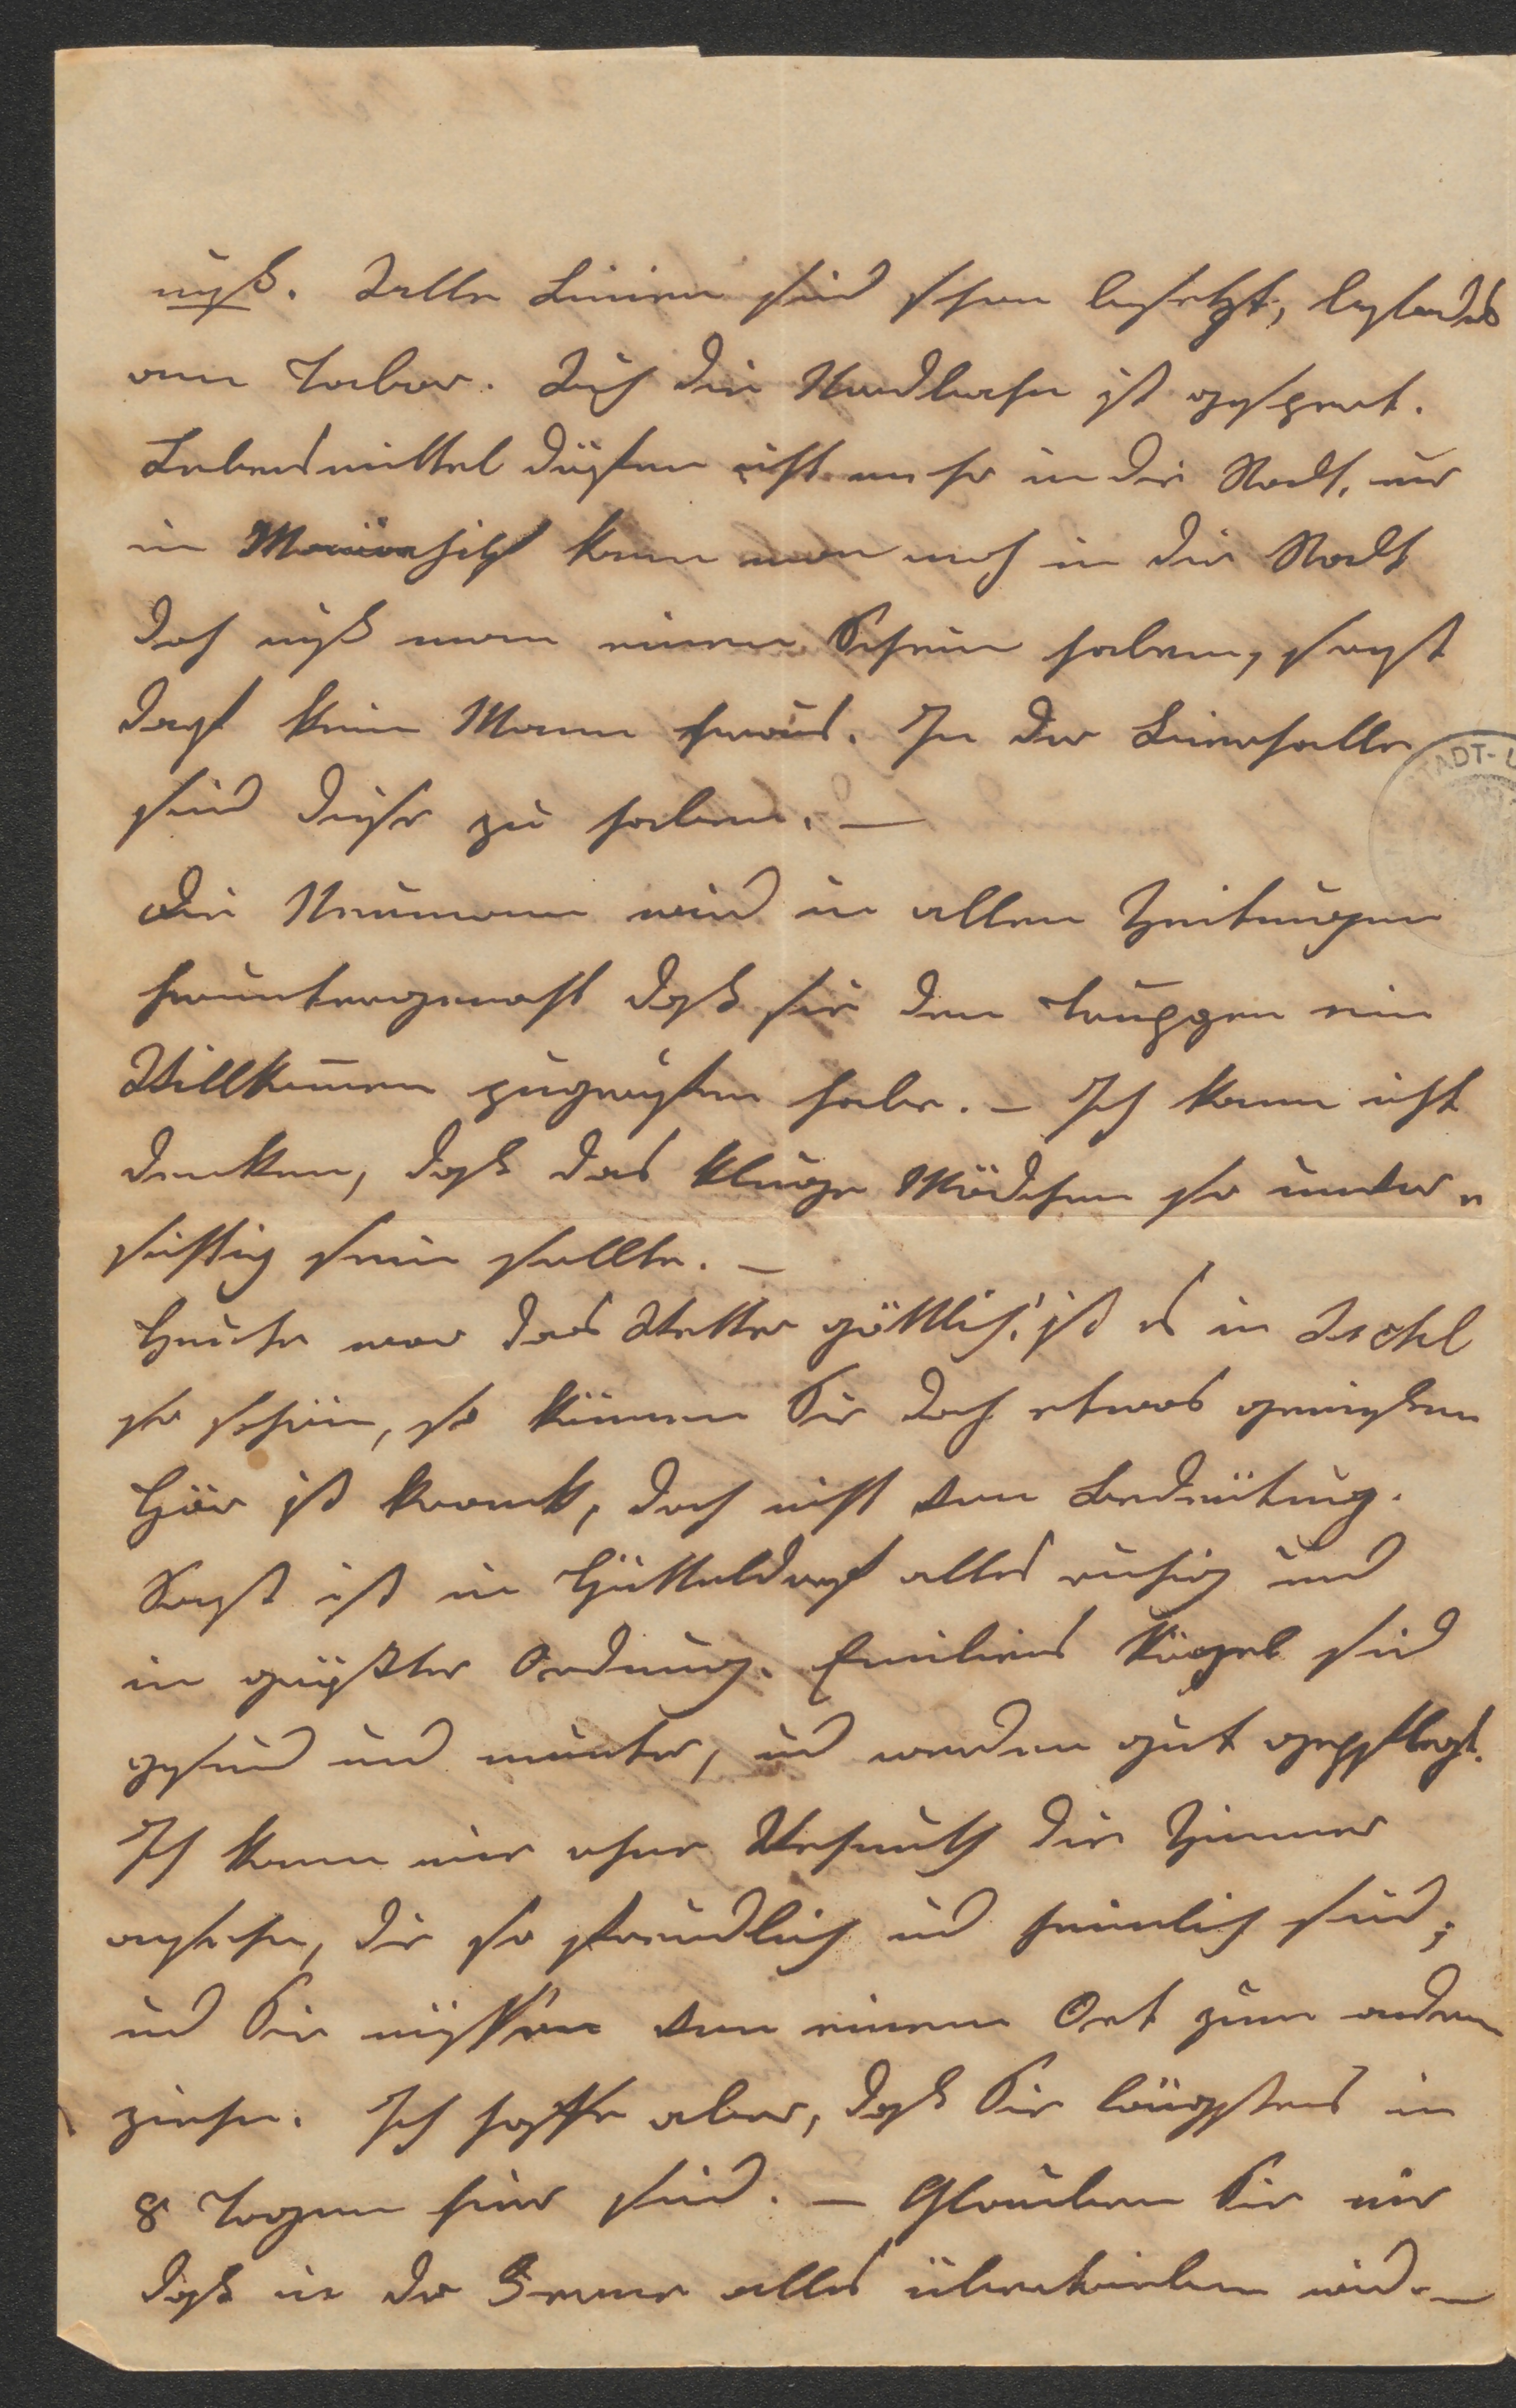 muß. Alle Linien sind schon besetzt, besonders
am Tabor. Auch die Nordbahn ist gesperrt.
Lebensmittel dürfen nicht mehr in die Stadt, nur
in Mariahilf kann man noch in die Stadt
doch muß man einen Schein haben, sonst
darf kein Mann heraus. In der
sind diese zu haben. —
Die Neumann wird in allen Zeitungen
heruntergemacht daß sie den Truppen ein
Willkomen zugerufen habe. – Ich kann nicht
denken, daß das kluge Mädchen so unvor„
sichtig sein sollte. –
Heute war das Wetter göttlich; ist es in Ischl
so schön, so können Sie doch etwas genießen
ist krank, doch nicht von Bedeutung.
Sonst ist in Hütteldorf alles ruhig und
in größter Ordnung. Emiliens Vögel sind
gesund und munter, und werden gut gepflegt.
Ich kann nie ohne Wehmuth die Zimmer
ansehen, die so freundlich und heimlich sind;
und Sie müssen von einem Ort zum andern
ziehen. Ich hoffe aber, daß Sie längstens in
8 Tagen hier sind. – Glauben Sie mir
daß in der Ferne alles übertrieben wird. –
STADT-